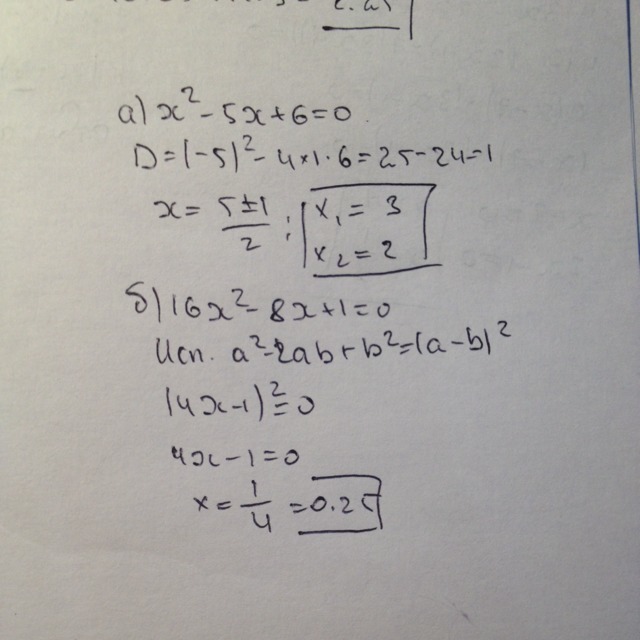 2.25
а) x² - 5x + 6 = 0
D = (-5)² - 4 × 1 · 6 = 25 - 24 = 1
x = (5 ± 1) / 2 ; x₁ = 3
x₂ = 2
б) 16x² - 8x + 1 = 0
Исп. a² - 2ab + b² = (a - b)²
(4x - 1)² = 0
4x - 1 = 0
x = 1/4 = 0.25